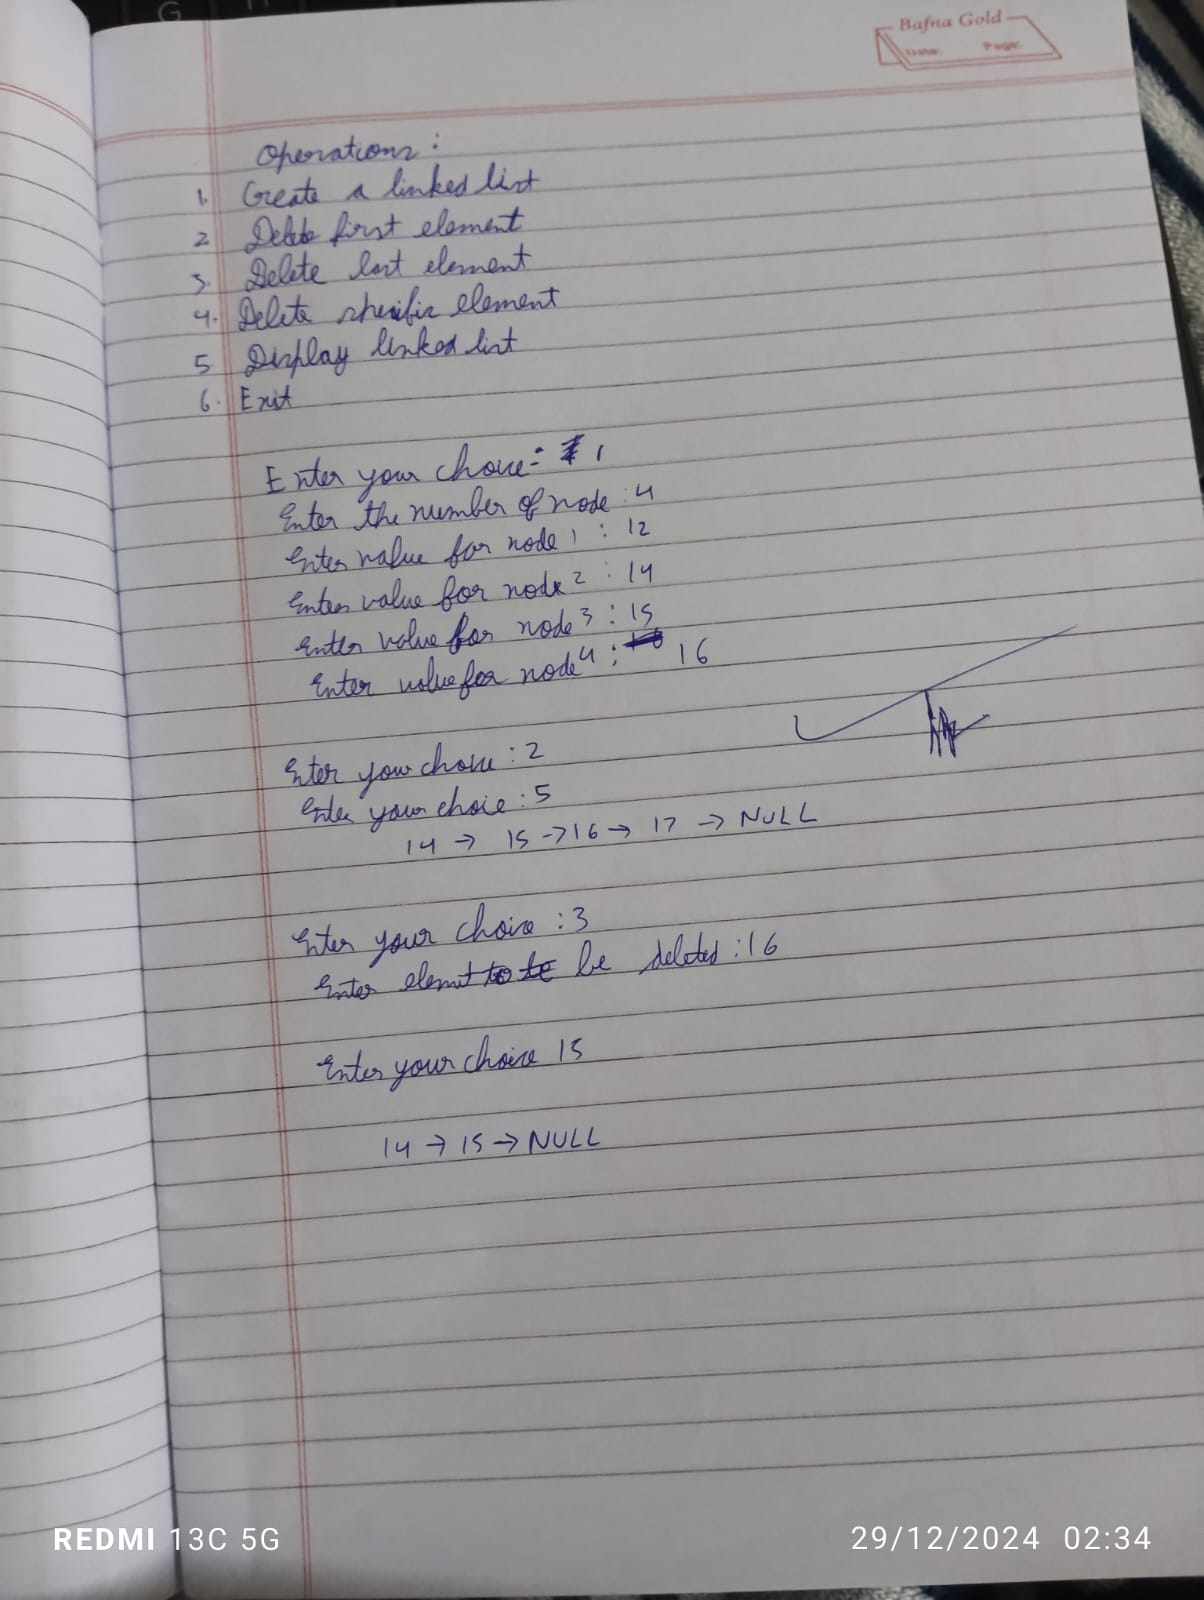 Bafna Gold
Date: Page:
Operations:
1. Create a linked list
2. Delete first element
3. Delete last element
4. Delete specific element
5. Display linked list
6. Exit
Enter your choice:- 1
Enter the number of node : 4
Enter value for node 1 : 12
Enter value for node 2 : 14
Enter value for node 3 : 15
Enter value for node 4 : 16
Enter your choice : 2
Enter your choice : 5
14 → 15 → 16 → 17 → NULL
Enter your choice : 3
Enter elemnt be deleted : 16
Enter your choice 15
14 → 15 → NULL
REDMI 13C 5G
29/12/2024 02:34